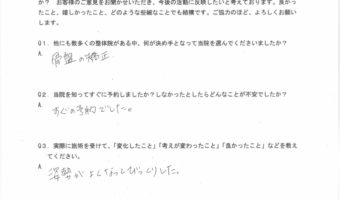 か？　お客様のご意見をお聞かせいただき、今後の活動に反映したいと考えております。良かっ
たこと、嬉しかったこと、どのような些細なことでも結構です。ご協力のほど、よろしくお願い
します。
Q1．他にも数多くの整体院がある中、何が決め手となって当院を選んでくださいましたか？
A 骨盤の矯正
Q2．当院を知ってすぐに予約しましたか？しなかったとしたらどんなことが不安でしたか？
A． すぐの予約でした。
Q3．実際に施術を受けて、「変化したこと」「考えが変わったこと」「良かったこと」などを教え
てください。
A 姿勢がよくなってびっくりした。